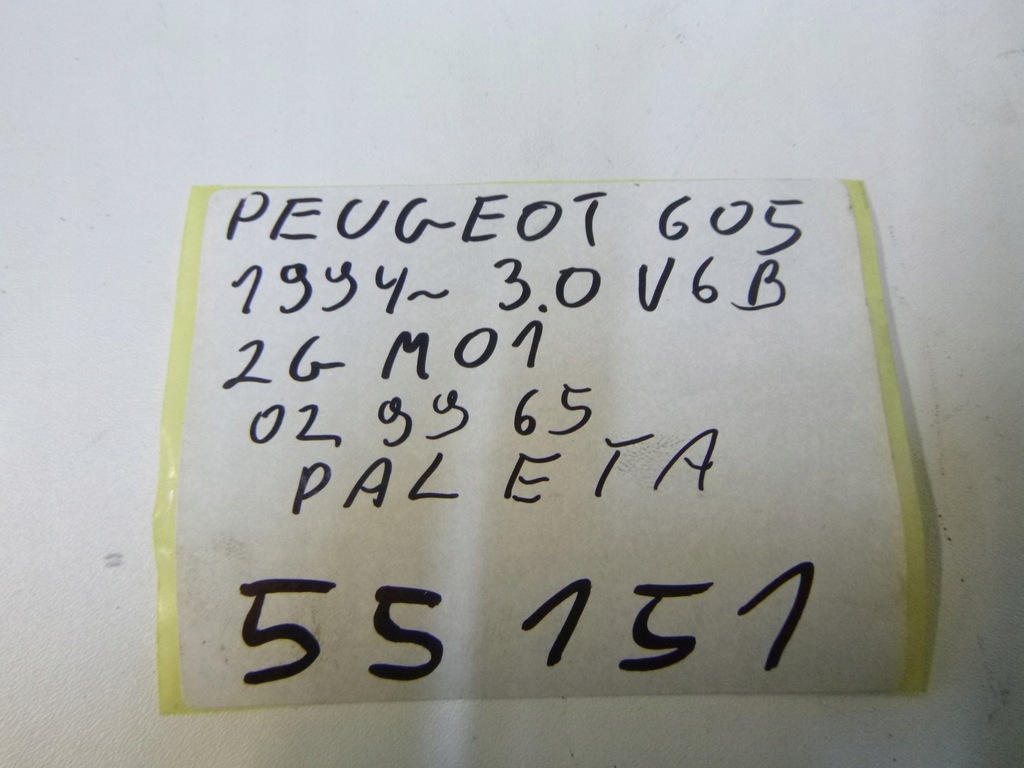 PEUGEOT 605
1994~ 3.0 V6 B
2G M01
02 99 65
PALETA
55151